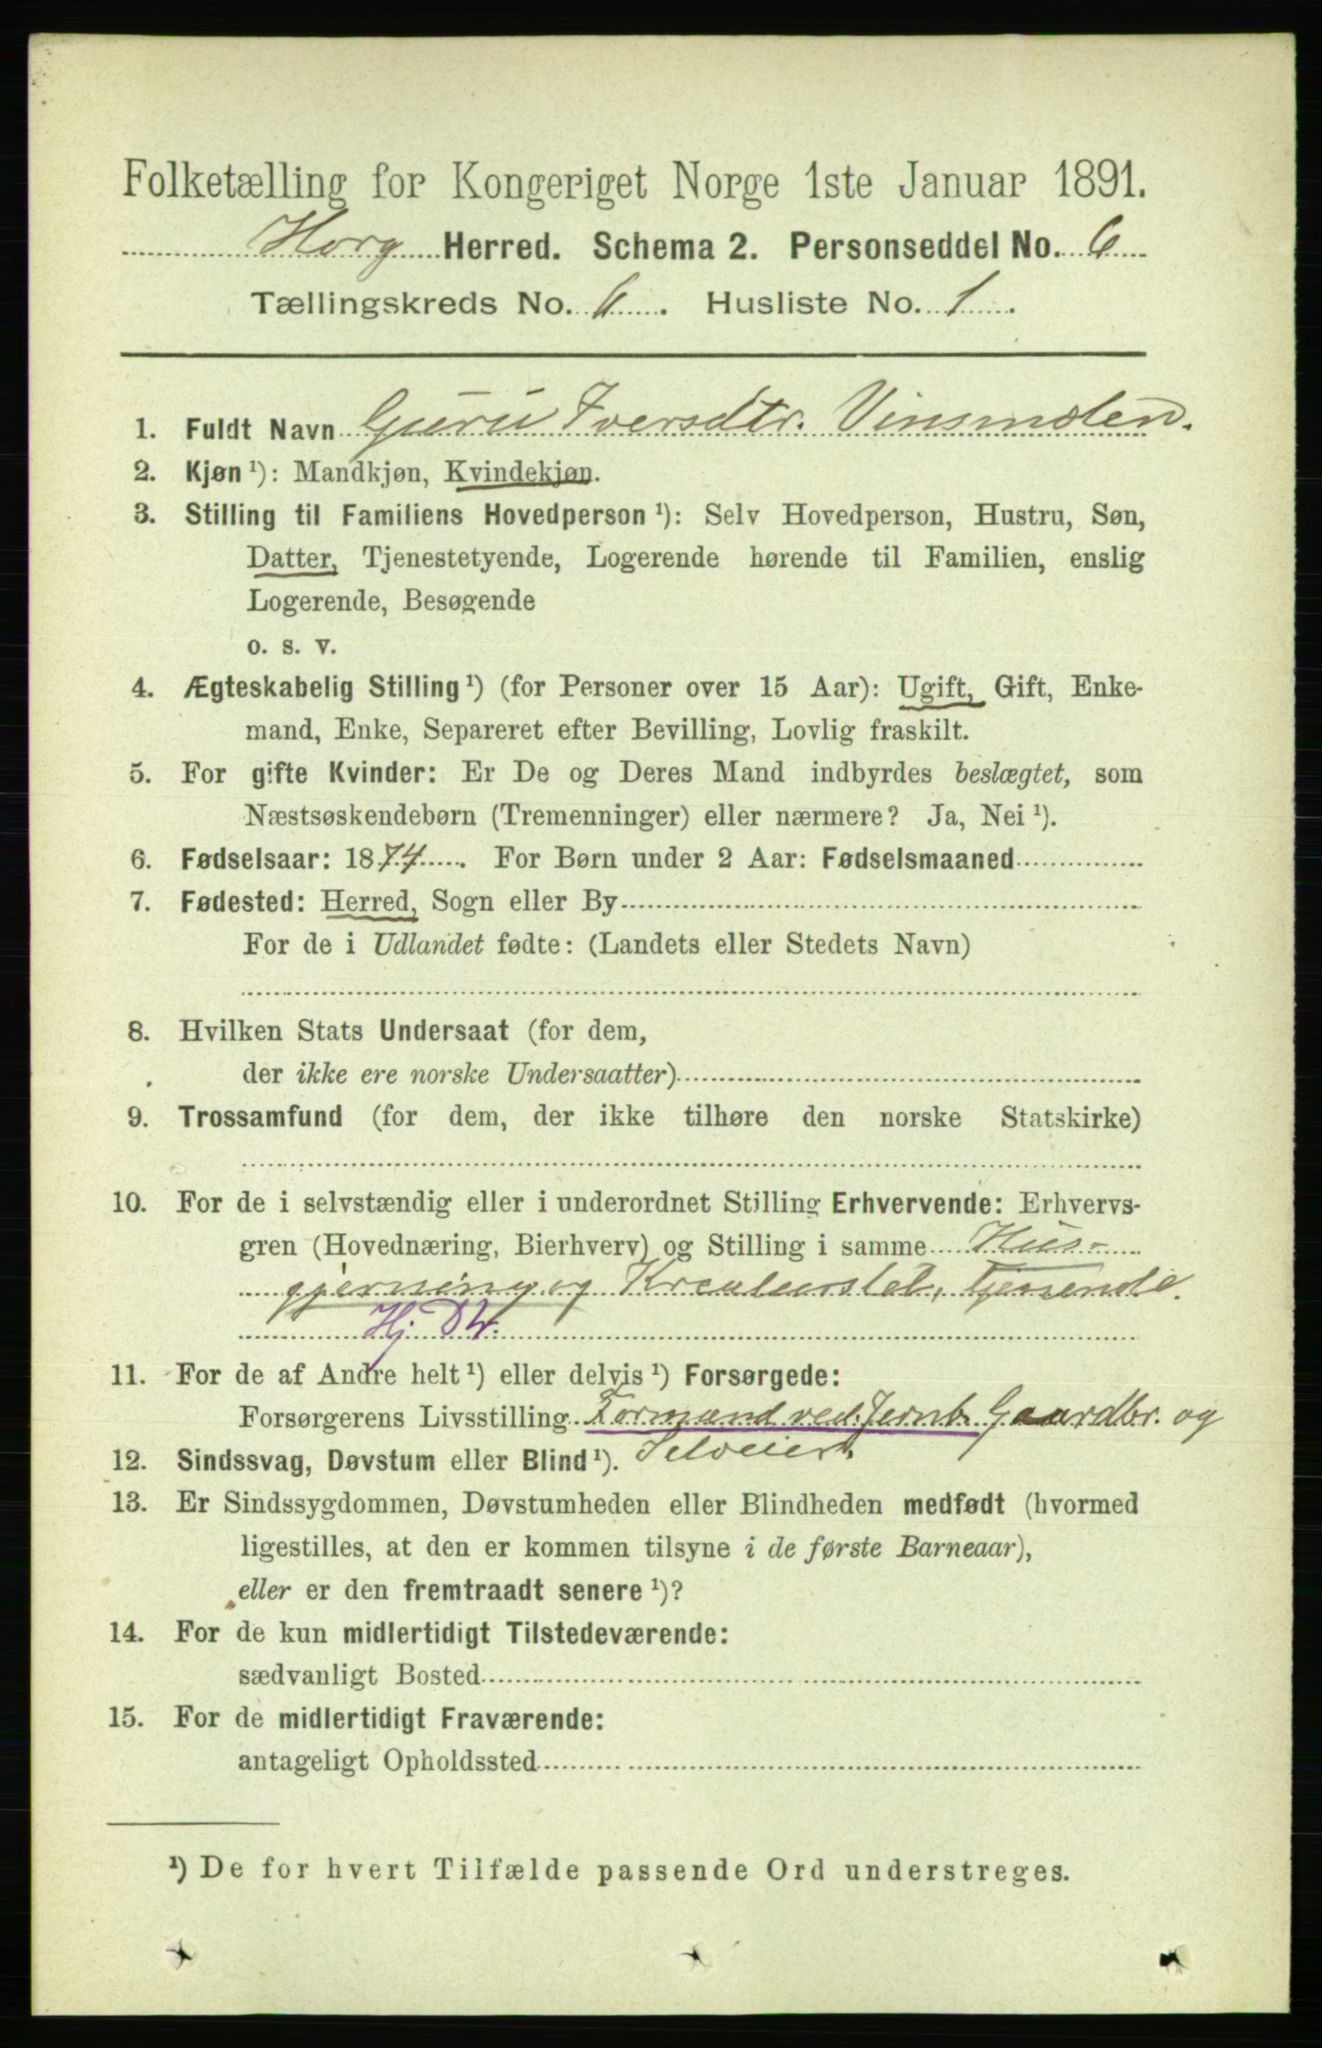 Folketælling for Kongeriget Norge 1ste Januar 1891.
Horg Herred. Schema 2. Personseddel No. 6
Tællingskreds No. 6. Husliste No. 1.
1. Fuldt Navn Guru Iversdtr. Vinsmolen.
2. Kjøn ¹): Mandkjøn, Kvindekjøn.
3. Stilling til Familiens Hovedperson ¹): Selv Hovedperson, Hustru, Søn,
Datter, Tjenestetyende, Logerende hørende til Familien, enslig
Logerende, Besøgende
o. s. v.
4. Ægteskabelig Stilling ¹) (for Personer over 15 Aar): Ugift, Gift, Enke-
mand, Enke, Separeret efter Bevilling, Lovlig fraskilt.
5. For gifte Kvinder: Er De og Deres Mand indbyrdes beslægtet, som
Næstsøskendebørn (Tremenninger) eller nærmere? Ja, Nei ¹).
6. Fødselsaar: 1874. For Børn under 2 Aar: Fødselsmaaned
7. Fødested: Herred, Sogn eller By
For de i Udlandet fødte: (Landets eller Stedets Navn)
8. Hvilken Stats Undersaat (for dem,
der ikke ere norske Undersaatter)
9. Trossamfund (for dem, der ikke tilhøre den norske Statskirke)
10. For de i selvstændig eller i underordnet Stilling Erhvervende: Erhvervs-
gren (Hovednæring, Bierhverv) og Stilling i samme Hus-
gjerning og Kreaturstel, tjenende.
Hj. Dtr.
11. For de af Andre helt ¹) eller delvis ¹) Forsørgede:
Forsørgerens Livsstilling Formand ved Jernb. Gaardbr. og
Selveier
12. Sindssvag, Døvstum eller Blind ¹).
13. Er Sindssygdommen, Døvstumheden eller Blindheden medfødt (hvormed
ligestilles, at den er kommen tilsyne i de første Barneaar),
eller er den fremtraadt senere ¹)?
14. For de kun midlertidigt Tilstedeværende:
sædvanligt Bosted
15. For de midlertidigt Fraværende:
antageligt Opholdssted
¹) De for hvert Tilfælde passende Ord understreges.